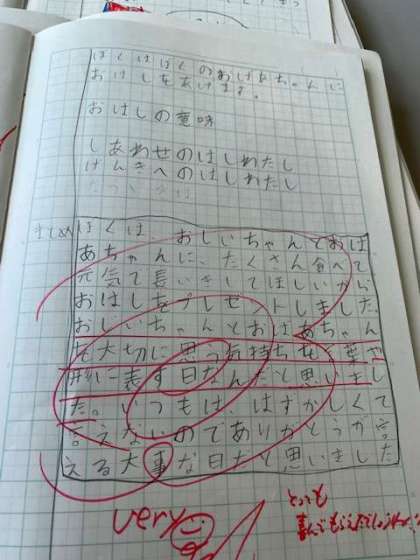 ぼくはぼくのおばあちゃんに
おはしをあげます。
おはしの意味
しあわせのはしわたし
げんきへのはしわたし
まとめ
ぼくは、おじいちゃんとおば
あちゃんに、たくさん食べて
元気で長いきしてほしいから
おはしをプレゼントしました。
おじいちゃんとおばあちゃん
を大切に思う気持ちを言葉や
形に表す日なんだと思いまし
た。いつもは、はずかしくて
言えないのでありがとうが言
える大事な日だと思いました
very
とっても